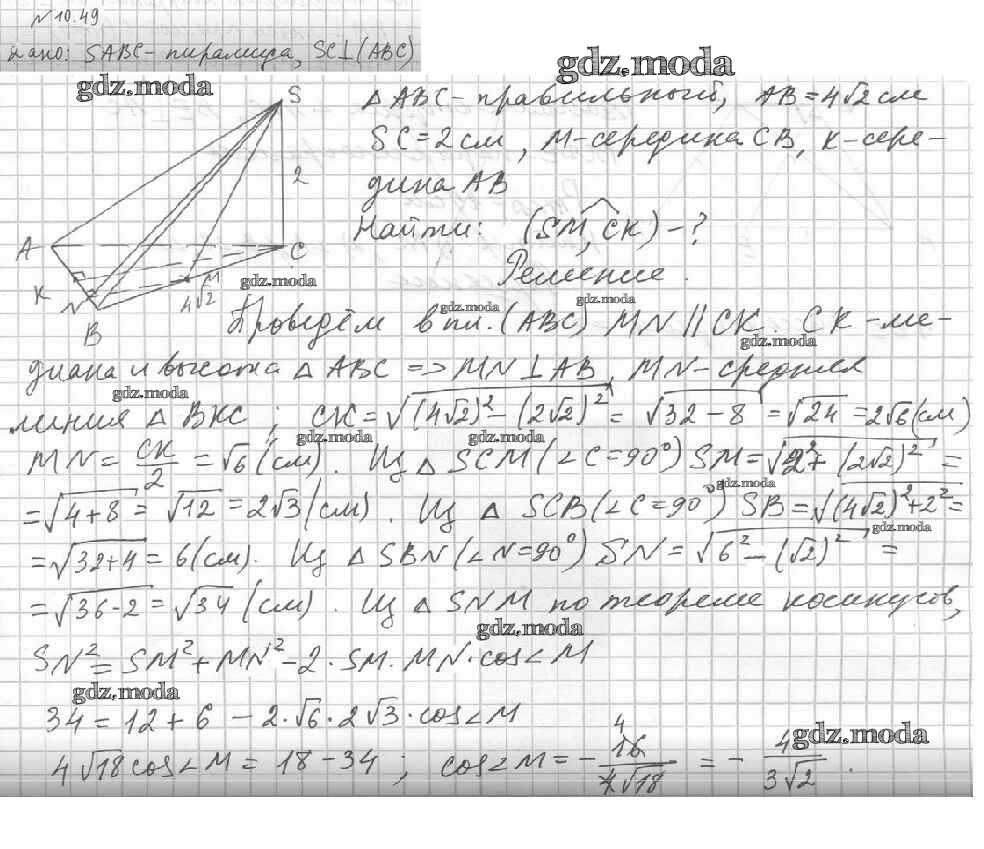 №10.49
Дано: SABC - пирамида, SC⊥(ABC)
gdz.moda
gdz.moda
△ABC - правильный, AB = 4√2 см
SC = 2 см, M - середина CB, K - сере-
дина AB
Найти: (SM, CK) - ?
Решение.
S
2
A
C
K
N
M
4√2
B
gdz.moda
gdz.moda
gdz.moda
Проведём в пл. (ABC) MN ∥ CK. CK - ме-
gdz.moda
диана и высота △ABC => MN⊥AB, MN - средняя
gdz.moda
линия △BKC; CK = √((4√2)² - (2√2)²) = √(32 - 8) = √24 = 2√6 (см)
gdz.moda
gdz.moda
MN = CK/2 = √6 (см). Из △SCM (∠C = 90°) SM = √(2² + (2√2)²) =
gdz.moda
= √(4 + 8) = √12 = 2√3 (см). Из △SCB (∠C = 90°) SB = √((4√2)² + 2²) =
gdz.moda
= √(32 + 4) = 6 (см). Из △SBN (∠N = 90°) SN = √(6² - (√2)²) =
= √(36 - 2) = √34 (см). Из △SNM по теореме косинусов,
gdz.moda
SN² = SM² + MN² - 2·SM·MN·cos∠M
gdz.moda
34 = 12 + 6 - 2·√6·2√3·cos∠M
gdz.moda
4√18 cos∠M = 18 - 34; cos∠M = - 16/4√18 = - 4/3√2.
4